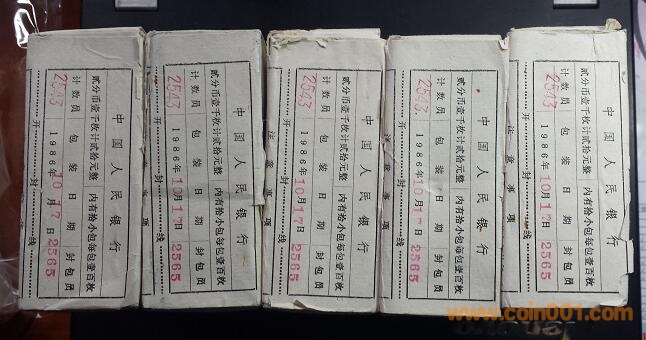 中国人民银行
贰分币壹千枚计贰拾元整 内有拾小包每包壹百枚
计数员 包装日期 封包员
2543 1986年10月17日 2565
开封线
中国人民银行
贰分币壹千枚计贰拾元整 内有拾小包每包壹百枚
计数员 包装日期 封包员
2543 1986年10月17日 2565
开封线
中国人民银行
贰分币壹千枚计贰拾元整 内有拾小包每包壹百枚
计数员 包装日期 封包员
2543 1986年10月17日 2565
开封线
注意事项
中国人民银行
贰分币壹千枚计贰拾元整 内有拾小包每包壹百枚
计数员 包装日期 封包员
2543 1986年10月17日 2565
开封线
注意事项
中国人民银行
贰分币壹千枚计贰拾元整 内有拾小包每包壹百枚
计数员 包装日期 封包员
2543 1986年10月17日 2565
开封线
www.coin001.com